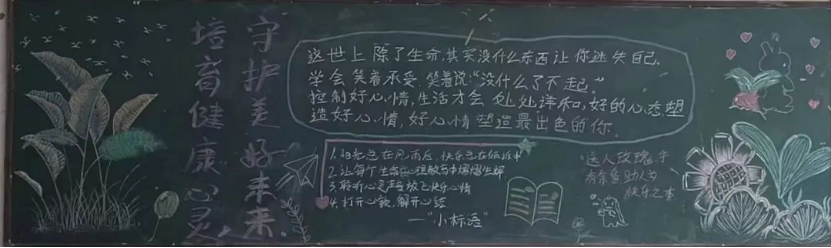 守护美好未来
培育健康心灵
这世上除了生命,其实没什么东西让你迷失自己。
学会笑着承受,笑着说:“没什么了不起。”
控制好心情,生活才会处处详和,好的心态塑
造好心情,好心情塑造最出色的你。
1.阳光总在风雨后,快乐总在
2.让每个生命
3.聆听心灵声音放飞快乐心情
4.打开心锁,解开心结
—“小标语”
送人玫瑰手
有余香助人
快乐之本